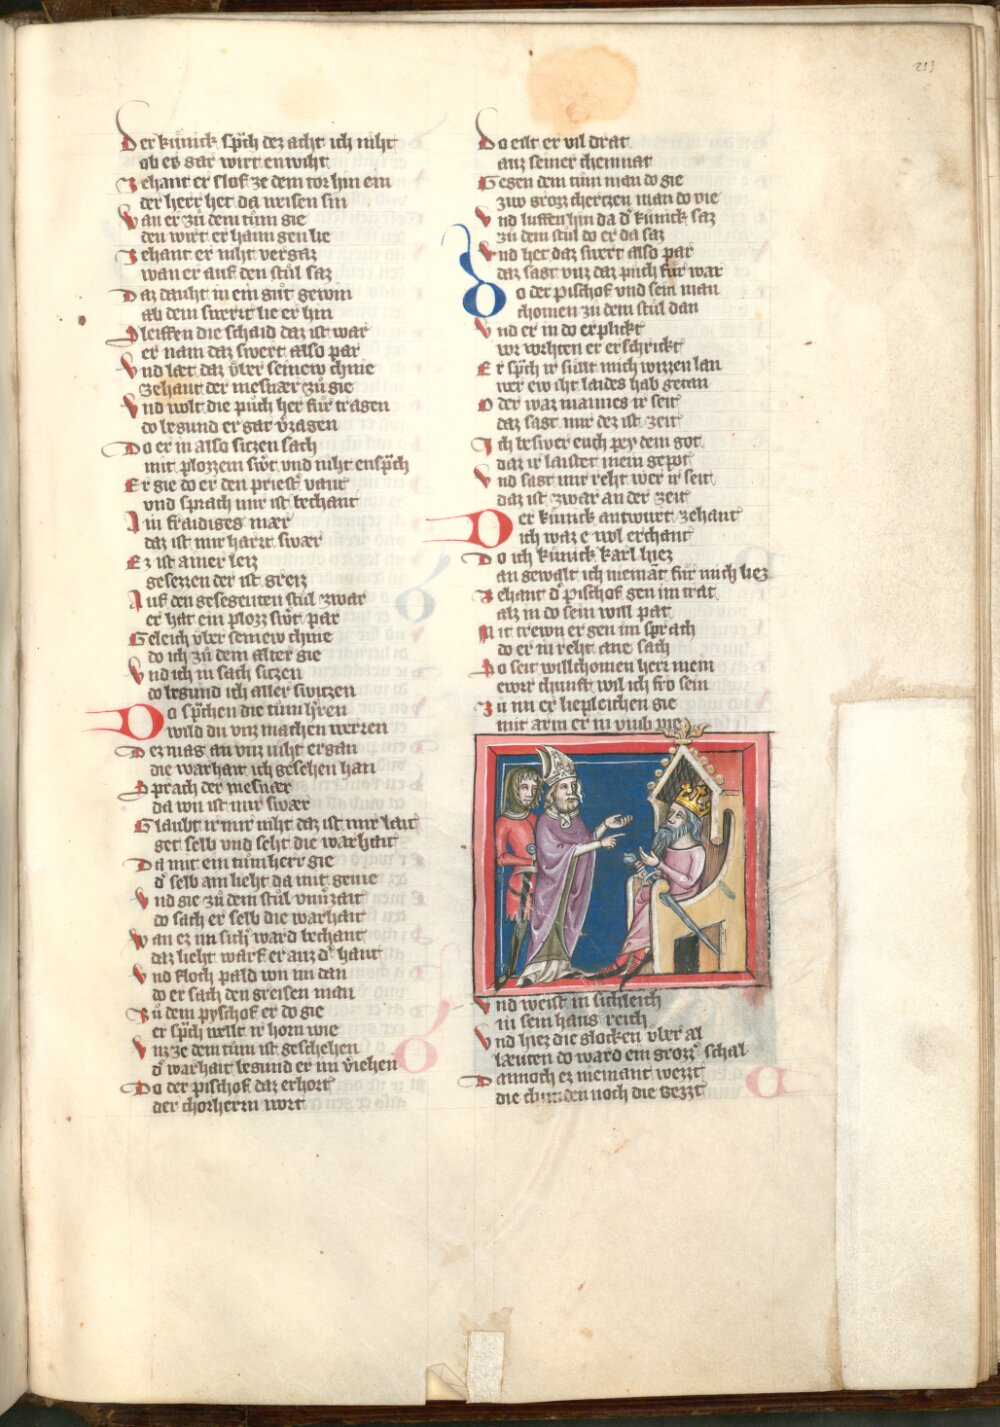 Der kůnick sp̄ch des acht ich niht
ob es gar wirt enwiht
Zehant er slof ze dem tor hin ein
der herr het da weisen sin
Wan er zů dem tům gie
den wirt er hann gen lie
Zehant er niht vergaz
wan er auf den stůl saz
Daz dauht in ein gůt gewin
ab dem swert lie er hin
Sleiffen die schaid daz ist war
er nam daz swert also par
Vnd læt daz v̊ber seinew chnie
Zehant der mesnær zů gie
Vnd wolt die půch her fůr tragen
do begund er gar v̊zagen
Do er in also sitzen sach
mit plozzem sw̄t vnd niht ensp̄ch
Er gie do er den priest vant
vnd sprach mir ist bechant
Ain fraidiges mær
daz ist mir hart swær
Ez ist ainer leiz
gesezzen der ist greiz
Auf den gesegenten stůl zwar
er hat ein plozz sw̄t par
Geleich v̊ber seinew chnie
do ich zů dem alter gie
Vnd ich in sach sitzen
do begund ich aller switzen
Do sp̄chen die tům h̄ren
wild du vnz machen werren
Dez mag an vnz niht ergan
die warhait ich gesehen han
Sprach der mesnær
da von ist mir swær
Glaubt ir mir niht daz ist mir lait
get selb vnd seht die warhait
Da mit ein tům herr gie
d selb am lieht da mit genie
Vnd gie zů dem stůl vnu̇zait
do sach er selb die warhait
Wan ez im sich ward bechant
daz lieht warf er auz d hant
Vnd floch pald von im dan
do er sach den greisen man
Zů dem pyschof er do gie
er sp̄ch welt ir horn wie
Vnz ze dem tům ist geschehen
d warhait begund er im v̄iehen
Do der pischof daz erhort
der chorherrn wort
Do eilt er vil drat
auz seiner chemnat
Gegen dem tům man do gie
zwo grozz chertzen man do vie
Vnd luffen hin da d kůnick saz
zů dem stůl do er da saz
Vnd het daz swert also par
daz sagt vnz daz půch fůr war
Do der pischof vnd sein man
chomen zů dem stůl dan
Vnd er in do erplickt
vor vorhten er erschrickt
Er sp̄ch ir sůllt mich wizzen lan
wer ew iht laides hab getan
Oder waz mannes ir seit
daz sagt mir dez ist zeit
Ich beswer euch pey dem got
daz ir laistet mein gepot
Vnd sagt mir reht wer ir seit
daz ist zwar an der zeit
Der kůnick antwurt zehant
ich waz e wol erchant
Do ich kůnick karl hiez
an gewalt ich niemāt fůr mich liez
Zehant d pischof gen im trat
alz in do sein will pat
Mit trewn er gen im sprach
do er in reht ane sach
So seit willchomen herr mein
ewr chunft wil ich fro sein
Zu im er liepleichen gie
mit arm er in vmb vie
Vnd weist in sichleich
in sein haus reich
Vnd hiez die glocken v̊ber al
læuten do ward ein grozz schal
Dannoch ez niemant wezzt
die chunden noch die gezzt